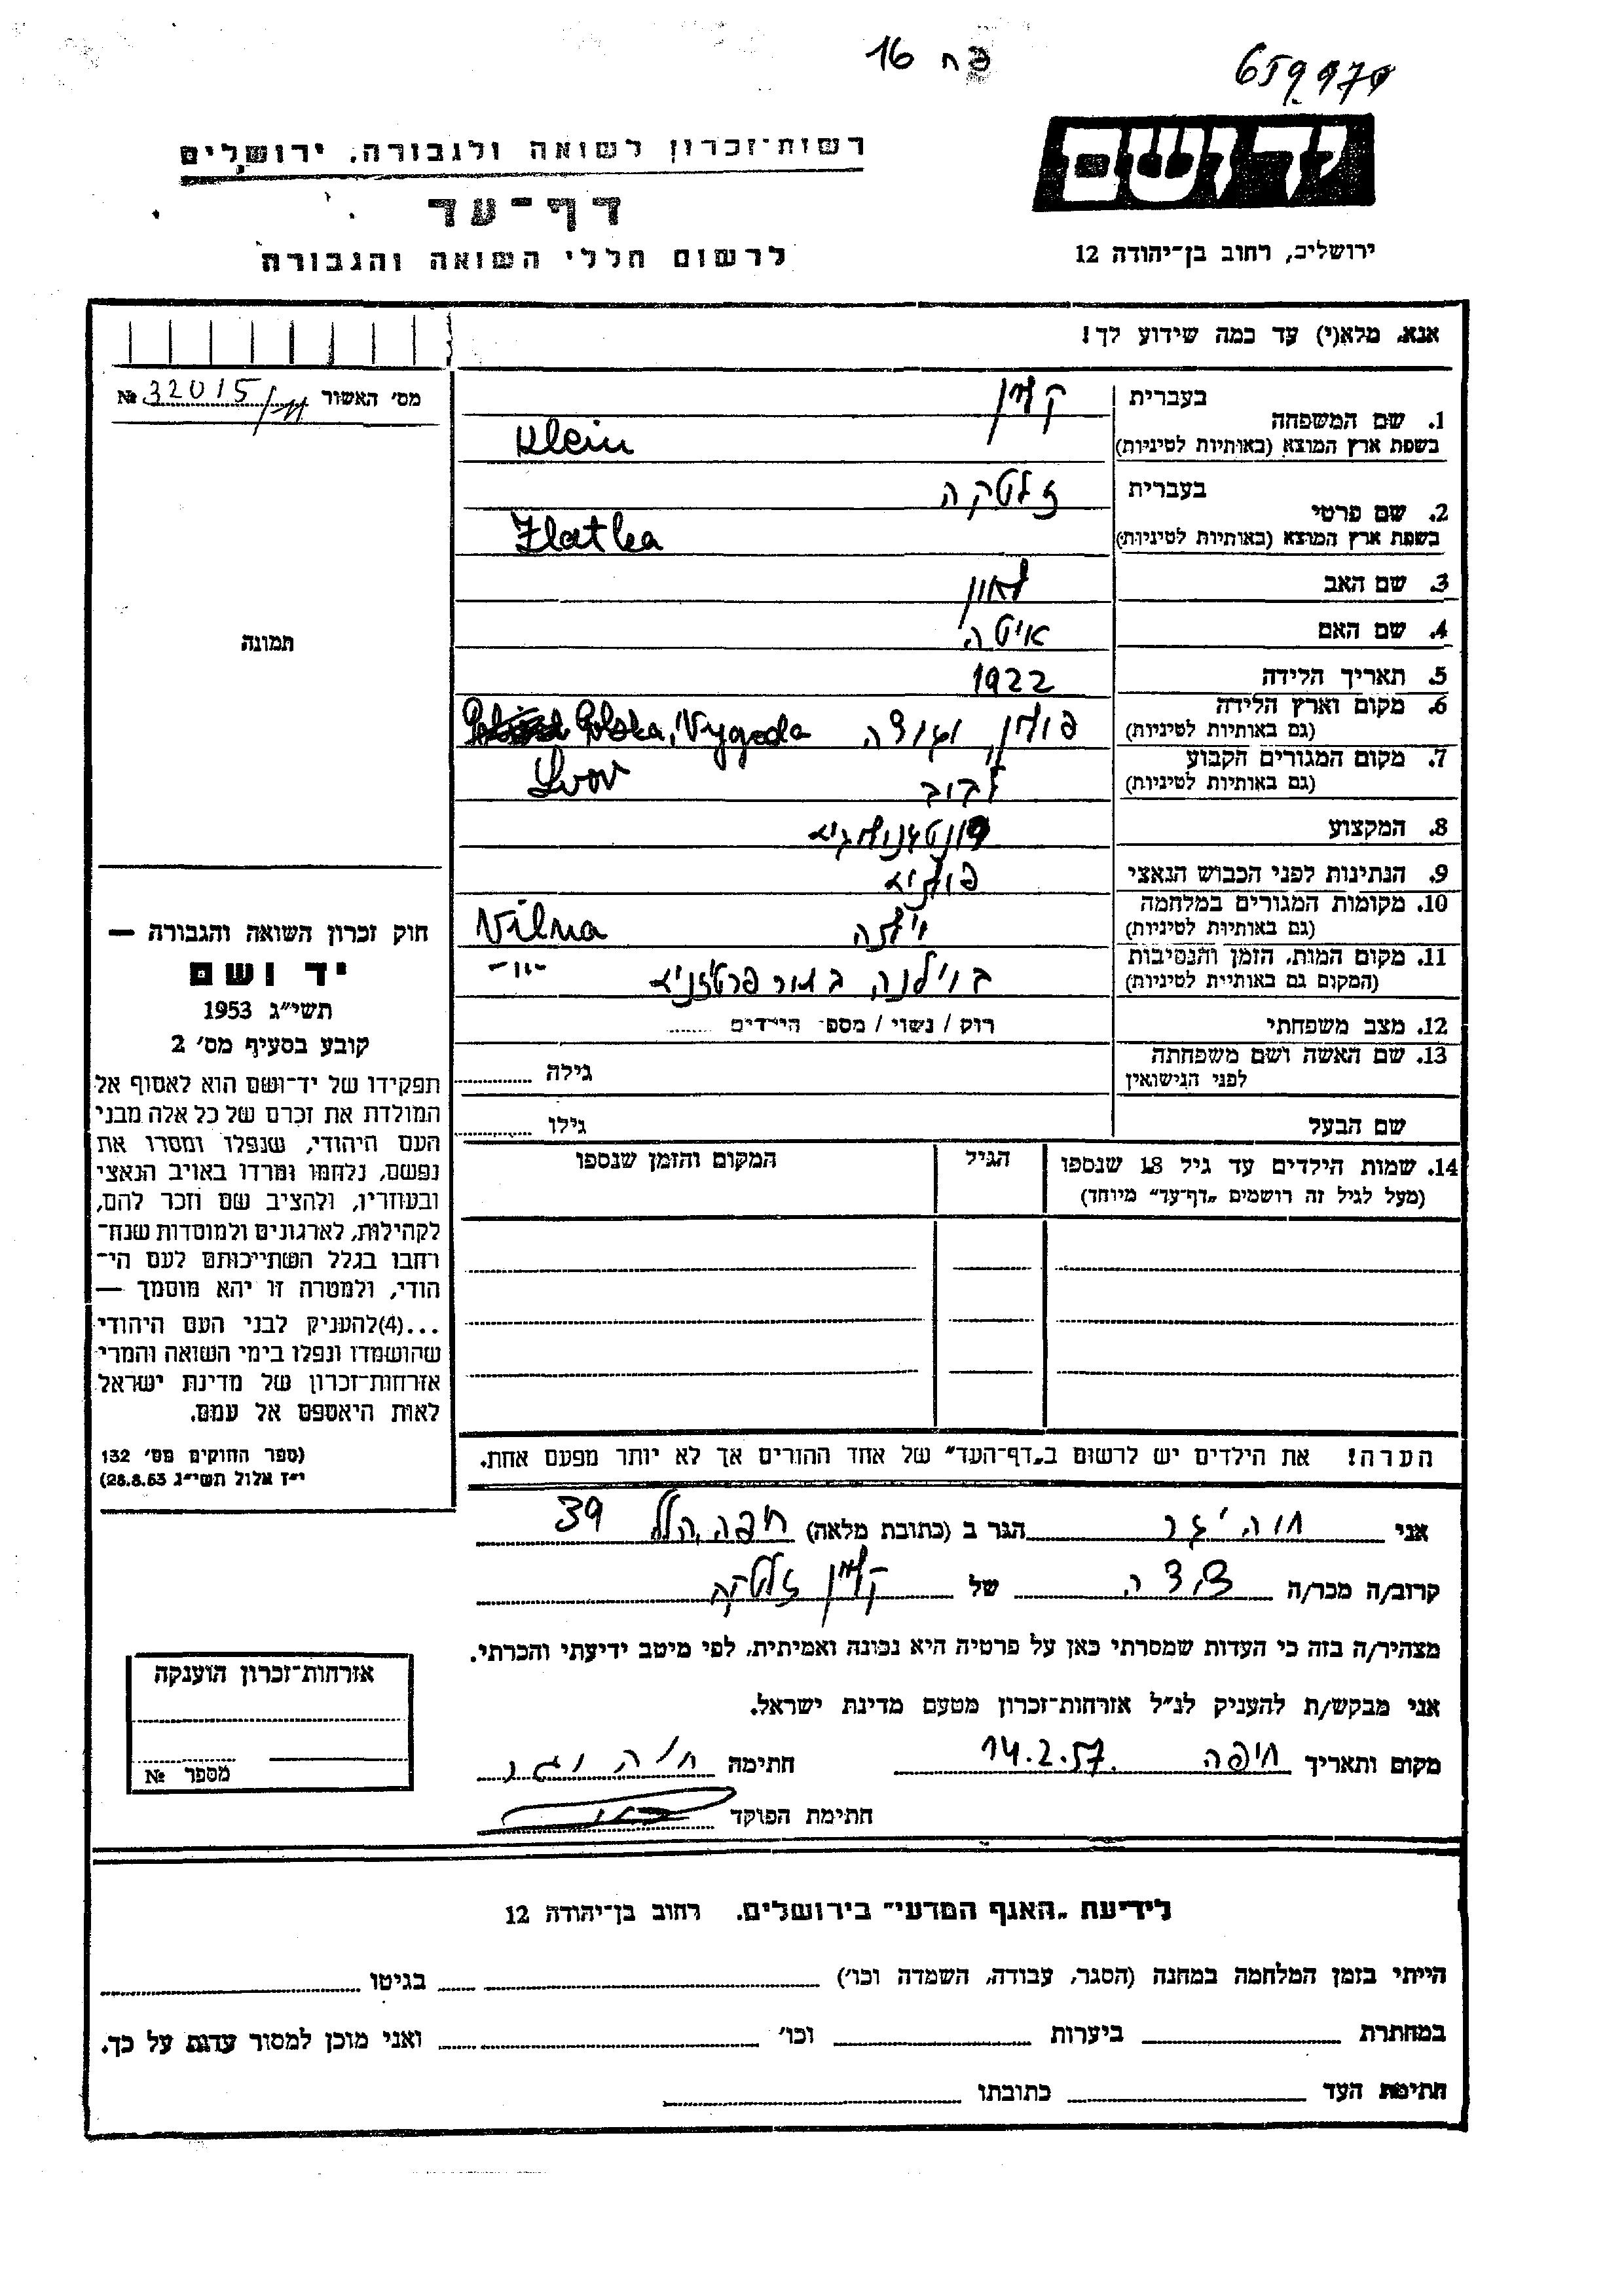 פח 16
659970
יד ושם
רשות־זכרון לשואה ולגבורה. ירושלים
דף־עד
לרשום חללי השואה והגבורה
ירושלים, רחוב בן־יהודה 12
אנא. מלא(י) עד כמה שידוע לך!
מס׳ האשור № 32015/11
תמונה
בעברית קליין
1. שם המשפחה
בשפת ארץ המוצא (באותיות לטיניות) Klein
בעברית זלטקה
2. שם פרטי
בשפת ארץ המוצא (באותיות לטיניות) Zlatka
3. שם האב לאון
4. שם האם איטה
5. תאריך הלידה 1922
6. מקום וארץ הלידה פולין, Polska, Vygoda
(גם באותיות לטיניות)
7. מקום המגורים הקבוע לבוב Lvov
(גם באותיות לטיניות)
8. המקצוע
9. הנתינות לפני הכבוש הנאצי פולניא
10. מקומות המגורים במלחמה וילנה Vilna
(גם באותיות לטיניות)
11. מקום המות. הזמן והנסיבות בוילנה בתור פרטיזניא -"-
(המקום גם באותיית לטיניות)
12. מצב משפחתי רוק / נשוי / מספ׳ הילדים
13. שם האשה ושם משפחתה
לפני הנישואין גילה
שם הבעל גילו
14. שמות הילדים עד גיל 18 שנספו הגיל המקום והזמן שנספו
(מעל לגיל זה רושמים „דף־עד״ מיוחד)
הערה! את הילדים יש לרשום ב„דף־העד״ של אחד ההורים אך לא יותר מפעם אחת.
חוק זכרון השואה והגבורה —
יד ושם
תשי״ג 1953
קובע בסעיף מס׳ 2
תפקידו של יד־ושם הוא לאסוף אל
המולדת את זכרם של כל אלה מבני
העם היהודי, שנפלו ומסרו את
נפשם, נלחמו ומרדו באויב הנאצי
ובעוזריו, ולהציב שם וזכר להם,
לקהילות, לארגונים ולמוסדות שנח־
רחבו בגלל השתייכותם לעם הי־
הודי, ולמטרה זו יהא מוסמך —
...(4)להעניק לבני העם היהודי
שהושמדו ונפלו בימי השואה והמרי
אזרחות־זכרון של מדינת ישראל
לאות היאספם אל עמם.
(ספר החוקים מס׳ 132
י״ז אלול תשי״ג 28.8.53)
אני חוה הגר ב (כתובת מלאה) חיפה, הלל 39
קרוב/ה מכר/ה של קליין זלטקה
מצהיר/ה בזה כי העדות שמסרתי כאן על פרטיה היא נכונה ואמיתית, לפי מיטב ידיעתי והכרתי.
אני מבקש/ת להעניק לנ״ל אזרחות־זכרון מטעם מדינת ישראל.
מקום ותאריך חיפה 14.2.57. חתימה
חתימת הפוקד
אזרחות־זכרון הוענקה
מספר №
לידיעת „האגף המדעי״ בירושלים. רחוב בן־יהודה 12
הייתי בזמן המלחמה במחנה (הסגר, עבודה, השמדה וכו׳) בגיטו
במחתרת ביערות וכו׳ ואני מוכן למסור עדות על כך.
חתימת העד כתובתו